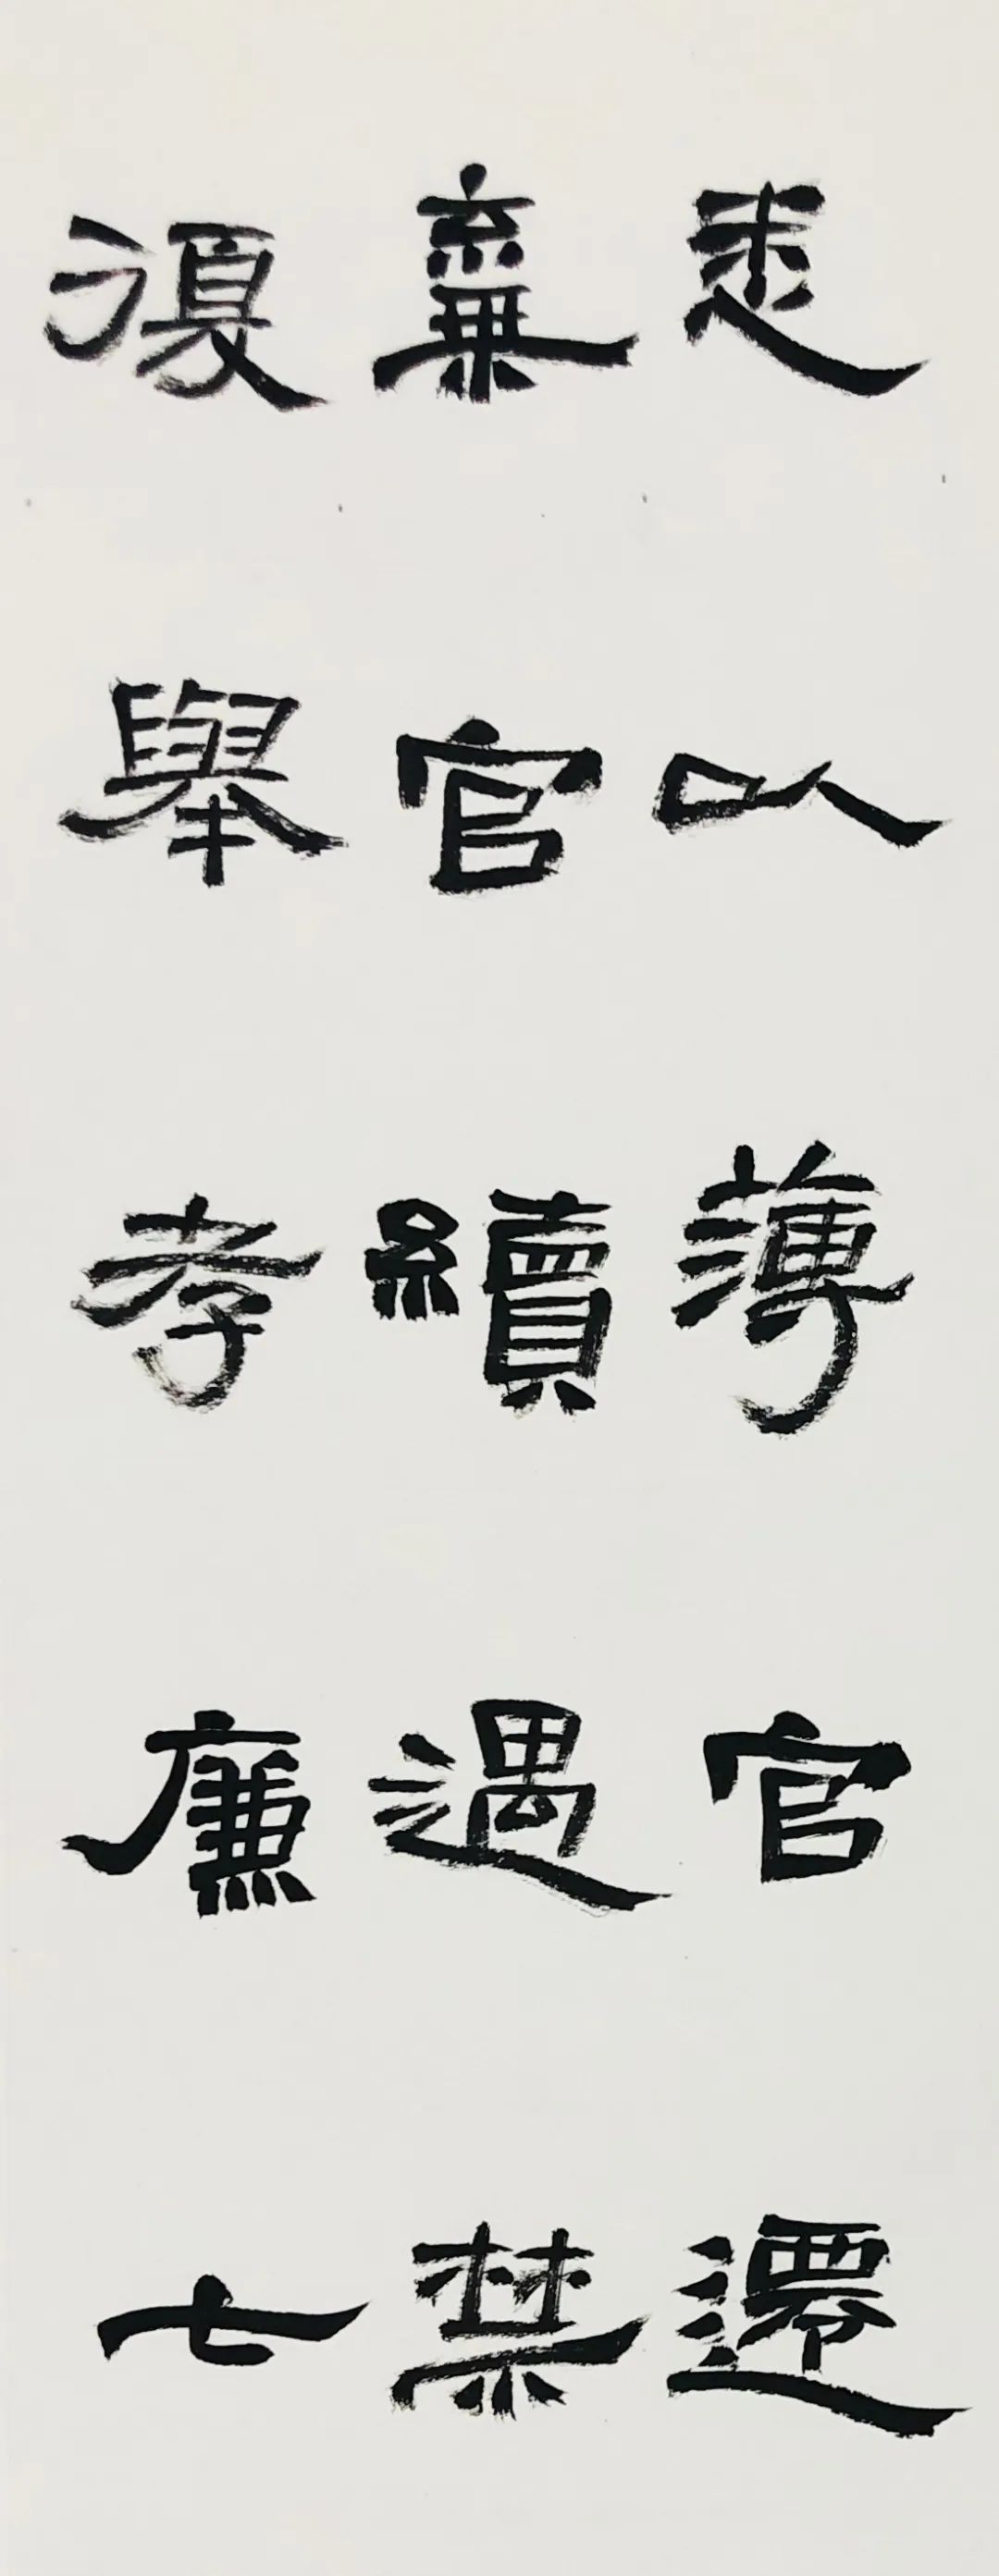 悉以薄官遷
棄官續遇禁
復舉孝廉七